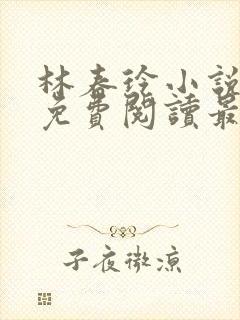 林春玲小說
免費閱讀最
子夜微涼